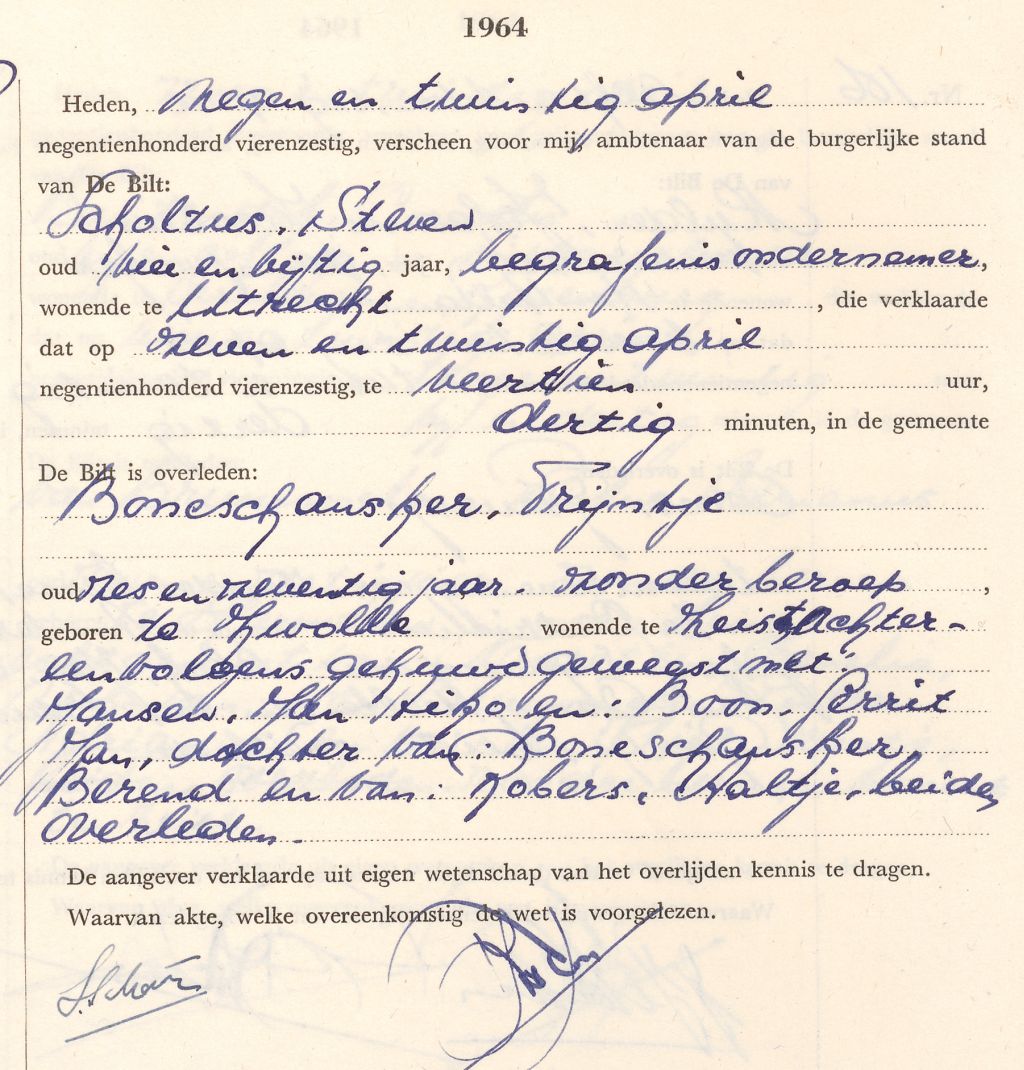 1964
Heden, negen en twintig april
negentienhonderd vierenzestig, verscheen voor mij, ambtenaar van de burgerlijke stand
van De Bilt:
Scholtus, Steven
oud vier en vijftig jaar, begrafenisondernemer,
wonende te Utrecht, die verklaarde
dat op zeven en twintig april
negentienhonderd vierenzestig, te veertien uur,
dertig minuten, in de gemeente
De Bilt is overleden:
Boneschansker, Trijntje
oud zes en zeventig jaar. zonder beroep,
geboren te Zwolle wonende te Zeist, Achter-
eenvolgens gehuwd geweest met:
Jansen, Jan Hiko en: Boon, Gerrit
Jan, dochter van: Boneschansker,
Berend en van: Robers, Aaltje, beiden
overleden.
De aangever verklaarde uit eigen wetenschap van het overlijden kennis te dragen.
Waarvan akte, welke overeenkomstig de wet is voorgelezen.